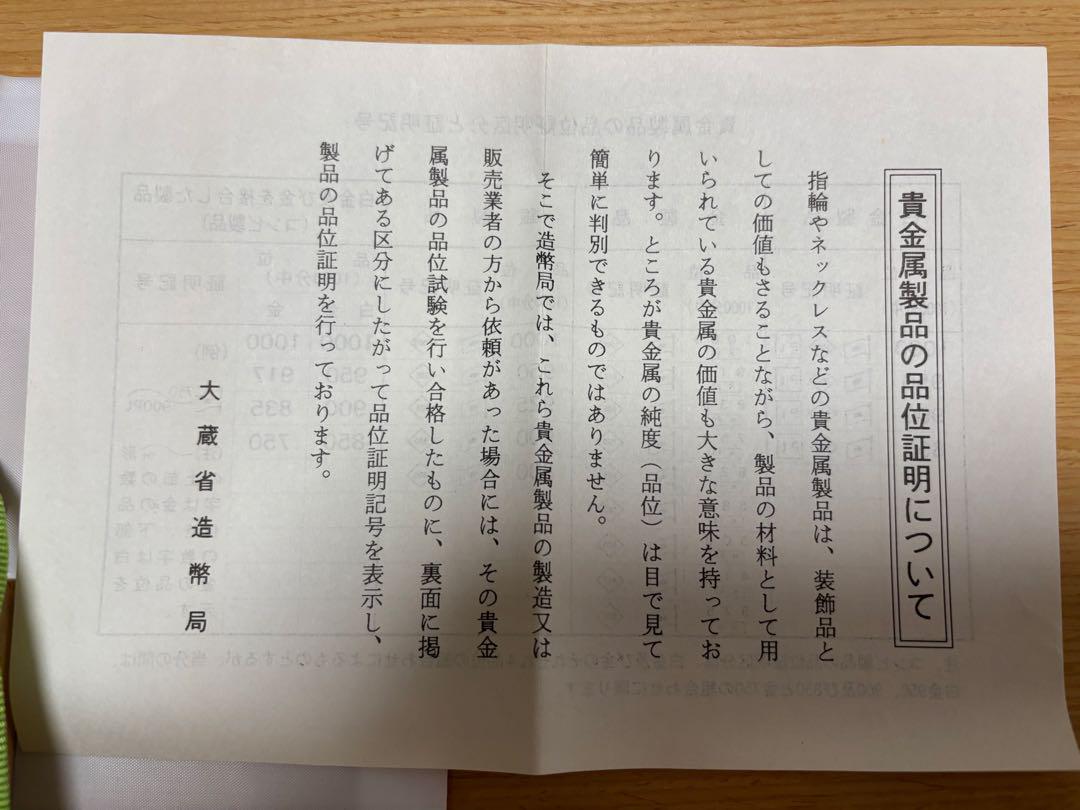 貴金属製品の品位証明について
指輪やネックレスなどの貴金属製品は、装飾品と
しての価値もさることながら、製品の材料として用
いられている貴金属の価値も大きな意味を持ってお
ります。ところが貴金属の純度（品位）は目で見て
簡単に判別できるものではありません。
そこで造幣局では、これら貴金属製品の製造又は
販売業者の方から依頼があった場合には、その貴金
属製品の品位試験を行い合格したものに、裏面に掲
げてある区分にしたがって品位証明記号を表示し、
製品の品位証明を行っております。
大蔵省造幣局